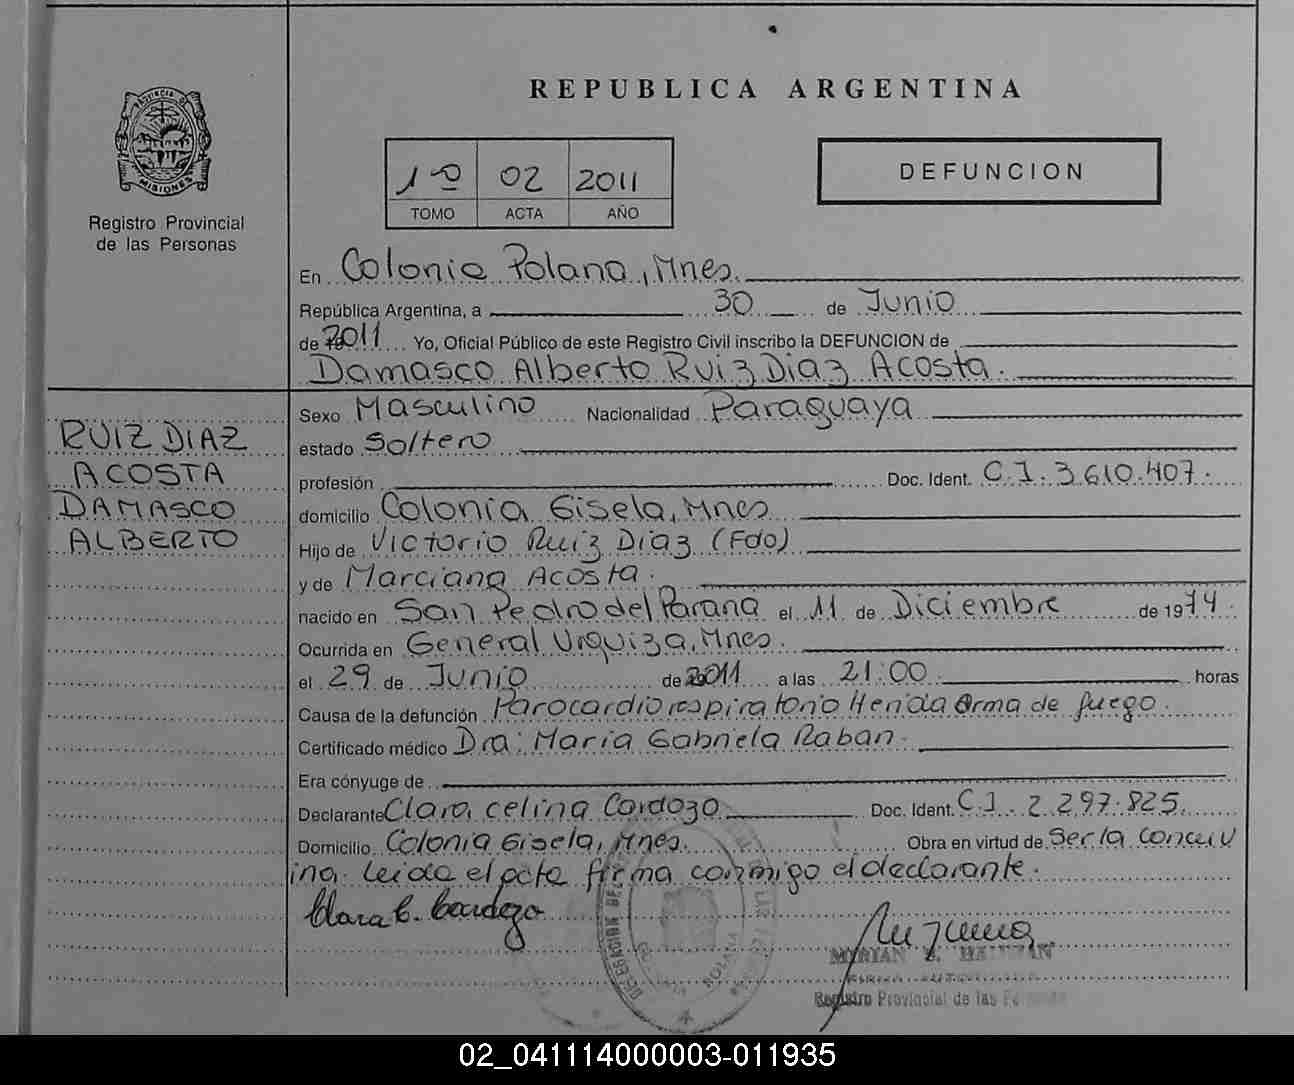 REPUBLICA ARGENTINA
PROVINCIA D
MISIONES
Registro Provincial
de las Personas
1º 02 2011
TOMO ACTA AÑO
DEFUNCION
En Colonia Polana, Mnes.
República Argentina, a 30 de Junio
de 2011 Yo, Oficial Público de este Registro Civil inscribo la DEFUNCION de
Damasco Alberto Ruiz Diaz Acosta.
RUIZ DIAZ
ACOSTA
DAMASCO
ALBERTO
Sexo Masculino Nacionalidad Paraguaya
estado Soltero
profesión Doc. Ident. C.I. 3.610.407.
domicilio Colonia Gisela, Mnes
Hijo de Victorio Ruiz Diaz (Fdo)
y de Marciana Acosta.
nacido en San Pedro del Parana el 11 de Diciembre de 1974.
Ocurrida en General Urquiza, Mnes.
el 29 de Junio de 2011 a las 21:00 horas
Causa de la defunción Parocardiorespiratorio Herida Arma de fuego.
Certificado médico Dra: Maria Gabriela Raban.
Era cónyuge de
Declarante Clara Celina Cardozo Doc. Ident. C.I. 2.297.825.
Domicilio Colonia Gisela, Mnes. Obra en virtud de Ser la concuv
ina Leida el acta firma conmigo el declarante.
Clara C. Cardozo
MYRIAN
Registro Provincial de las
02_041114000003-011935